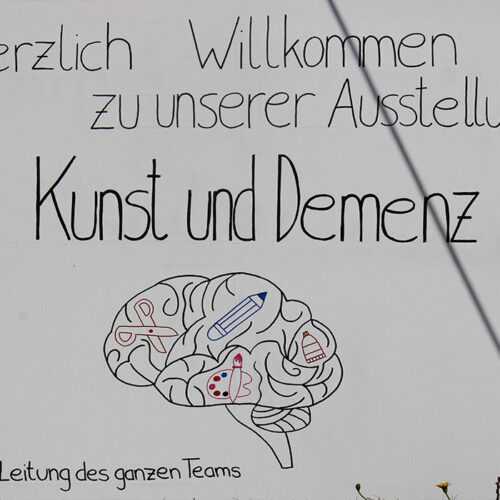 erzlich Willkommen
zu unserer Ausstellu
Kunst und Demenz
Leitung des ganzen Teams